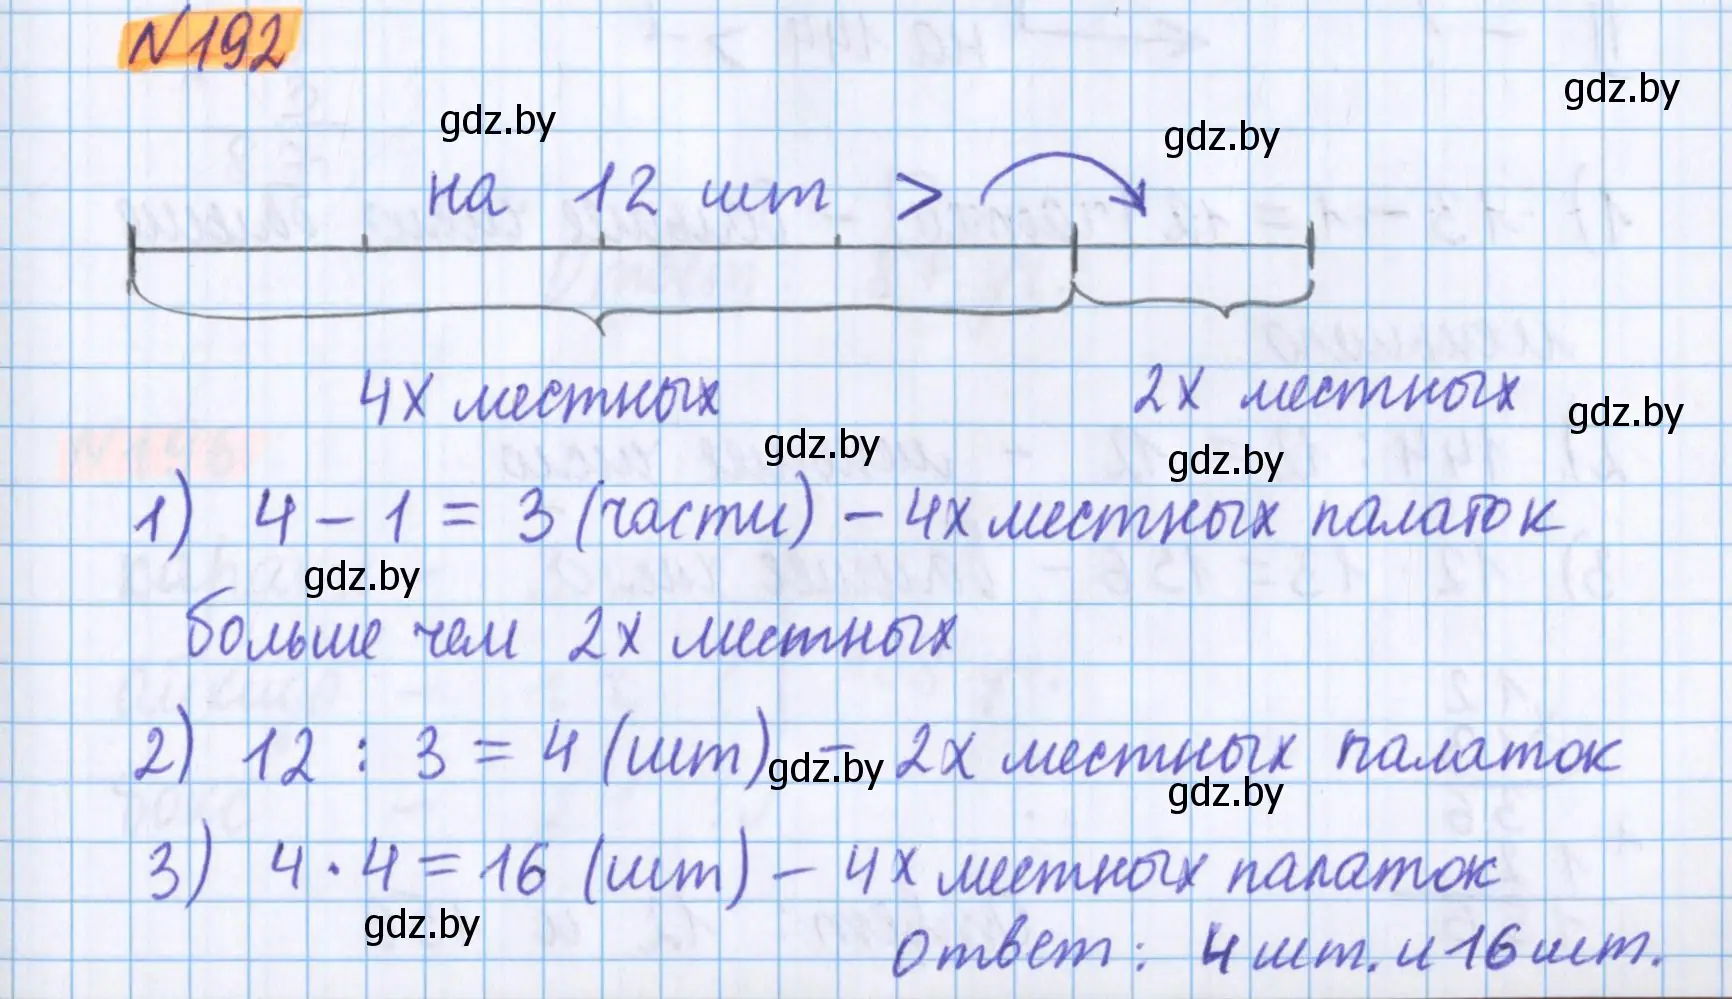 N192
gdz.by
gdz.by
gdz.by
на 12 шт >
4х местных
2х местных
gdz.by
gdz.by
gdz.by
1) 4 - 1 = 3 (части) - 4х местных палаток
gdz.by
больше чем 2х местных
2) 12 : 3 = 4 (шт) - 2х местных палаток
gdz.by
gdz.by
3) 4 · 4 = 16 (шт) - 4х местных палаток
gdz.by
ответ: 4 шт. и 16 шт.